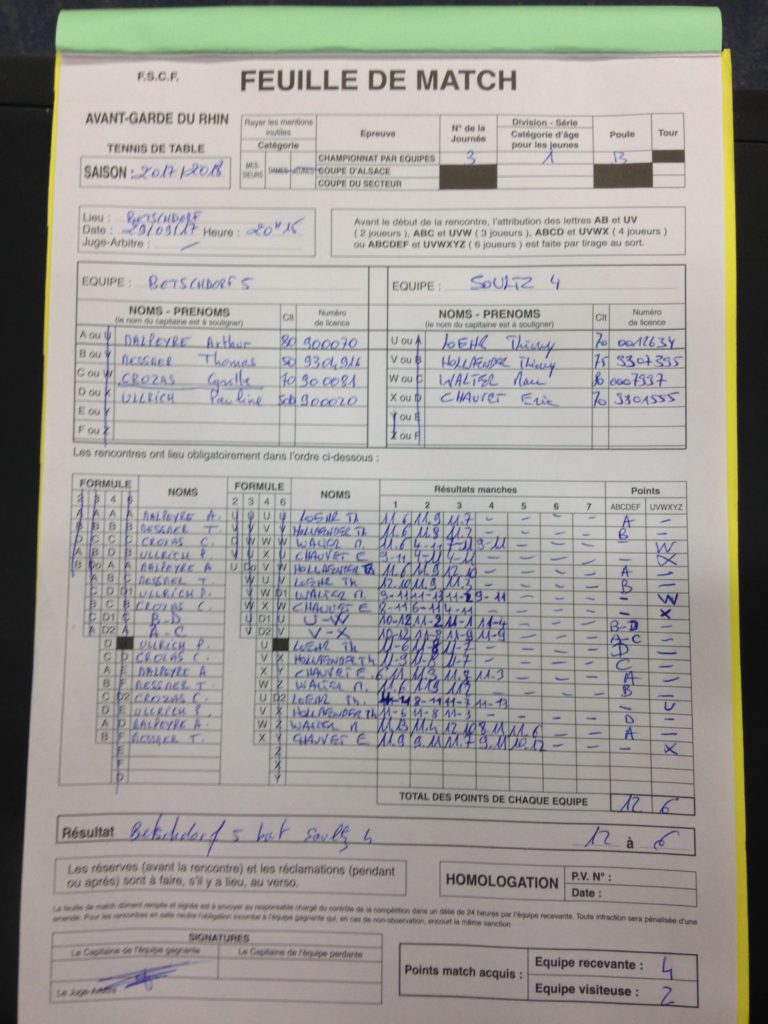 F.S.C.F. FEUILLE DE MATCH
AVANT-GARDE DU RHIN
TENNIS DE TABLE
SAISON : 2017/2018
Rayer les mentions inutiles
Catégorie
MESSIEURS DAMES
Epreuve
N° de la Journée
Division - Série
Catégorie d'âge pour les jeunes
Poule
Tour
CHAMPIONNAT PAR EQUIPES 3 1 B
COUPE D'ALSACE
COUPE DU SECTEUR
Lieu : BETSCHDORF
Date : 29/09/17 Heure : 20H15
Juge-Arbitre : —
Avant le début de la rencontre, l'attribution des lettres AB et UV
( 2 joueurs ), ABC et UVW ( 3 joueurs ), ABCD et UVWX ( 4 joueurs )
ou ABCDEF et UVWXYZ ( 6 joueurs ) est faite par tirage au sort.
EQUIPE : BETSCHDORF 5
NOMS - PRENOMS
(le nom du capitaine est à souligner)
Clt
Numéro de licence
A ou U DALPEYRE Arthur 80 900070
B ou V Thomas 50
C ou W CROZAS Cyrille 70 900081
D ou X ULLRICH Pauline 900020
E ou Y
F ou Z
EQUIPE : SOULTZ 4
NOMS - PRENOMS
(le nom du capitaine est à souligner)
Clt
Numéro de licence
U ou A LOEHR Thierry 70 0012634
V ou B HOLLAENDER Thierry 75 3307395
W ou C WALTER Marc 0007937
X ou D CHAUVET Eric 70 3301555
Y ou E
Z ou F
Les rencontres ont lieu obligatoirement dans l'ordre ci-dessous :
FORMULE NOMS FORMULE NOMS Résultats manches Points
2 3 4 6 2 3 4 6 1 2 3 4 5 6 7 ABCDEF UVWXYZ
DALPEYRE A. LOEHR Th 11.6 11.9 11.7 — — — — A —
T. HOLLAENDER Th 11.6 11.8 11.7 — — — — B —
CROZAS C. WALTER M. W
ULLRICH P. CHAUVET E X
DALPEYRE A HOLLAENDER Th 11.6 11.9 12.10 — — — — A —
T. LOEHR Th 12.10 11.9 11.3 — — — — B —
ULLRICH P. WALTER M. — W
CROZAS C. CHAUVET E 8-11 6-11 4-11 — — — — — X
B-D U-W 10-12 11-2 11-1 11-4 — — — B-D —
A-C V-X 10-12 11-8 11-9 11-9 — — — A-C —
ULLRICH P. LOEHR Th 11-6 11-8 11-7 — — — — D —
CROZAS C. HOLLAENDER Th 11-9 11-8 11-7 — — — — C —
DALPEYRE A CHAUVET E 6.11 11.3 11.8 11.3 — — — A —
T. WALTER M. B —
CROZAS C. LOEHR Th — U
ULLRICH P. HOLLAENDER Th 11-6 11-8 11-3 — — — — D —
DALPEYRE A WALTER M 11.4 12.10 8.11 11.6 — — A —
T. CHAUVET E 11.9 9.11 11.7 9.11 10.12 — — — X
TOTAL DES POINTS DE CHAQUE EQUIPE 12 6
Résultat Betschdorf 5 bat Soultz 4 12 à 6
Les réserves (avant la rencontre) et les réclamations (pendant
ou après) sont à faire, s'il y a lieu, au verso.
HOMOLOGATION
P.V. N° :
Date :
La feuille de match dûment remplie et signée est à envoyer au responsable chargé du contrôle de la compétition dans un délai de 24 heures par l'équipe recevante. Toute infraction sera pénalisée d'une
amende. Pour les rencontres en salle neutre l'obligation incombe à l'équipe gagnante qui, en cas de non-observation, encourt la même sanction
SIGNATURES
Le Capitaine de l'équipe gagnante
Le Capitaine de l'équipe perdante
Le Juge-Arbitre
Points match acquis :
Equipe recevante : 4
Equipe visiteuse : 2